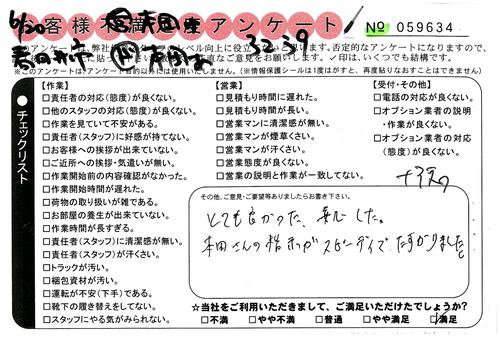 6/20
お客様不満足度アンケート
№ 059634
3239
※このアンケートはアンケート目的以外には使用いたしません。(※情報保護シールは1度はがすと、再度貼りなおすことはできません)
チェックリスト
【作業】
□責任者の対応(態度)が良くない。
□他のスタッフの対応(態度)が良くない。
□作業を見ていて不安がある。
□責任者(スタッフ)に好感が持てない。
□お客様への挨拶が出来ていない。
□ご近所への挨拶・気遣いが無い。
□作業開始前の内容確認がなかった。
□作業開始時間が遅れた。
□荷物の取り扱いが雑である。
□お部屋の養生が出来ていない。
□作業時間が長すぎる。
□責任者(スタッフ)に清潔感が無い。
□責任者(スタッフ)が汗くさい。
□トラックが汚い。
□梱包資材が汚い。
□運転が不安(下手)である。
□靴下の履き替えをしてない。
□スタッフにやる気がみられない。
【営業】
□見積もり時間に遅れた。
□見積もり時間が長い。
□営業マンに清潔感が無い。
□営業マンが煙草くさい。
□営業マンが汗くさい。
□営業態度が良くない。
□営業の説明と作業が一致してない。
【受付・その他】
□電話の対応が良くない。
□オプション業者の説明・作業が良くない。
□オプション業者の対応(態度)が良くない。
その他、ご意見・ご要望等ありましたらお書き下さい。
とても良かった、安心した。
本田さんの指示がスピーディでたすかりました。
☆当社をご利用いただきまして、ご満足いただけたでしょうか?
□不満 □やや不満 □普通 □やや満足 □満足